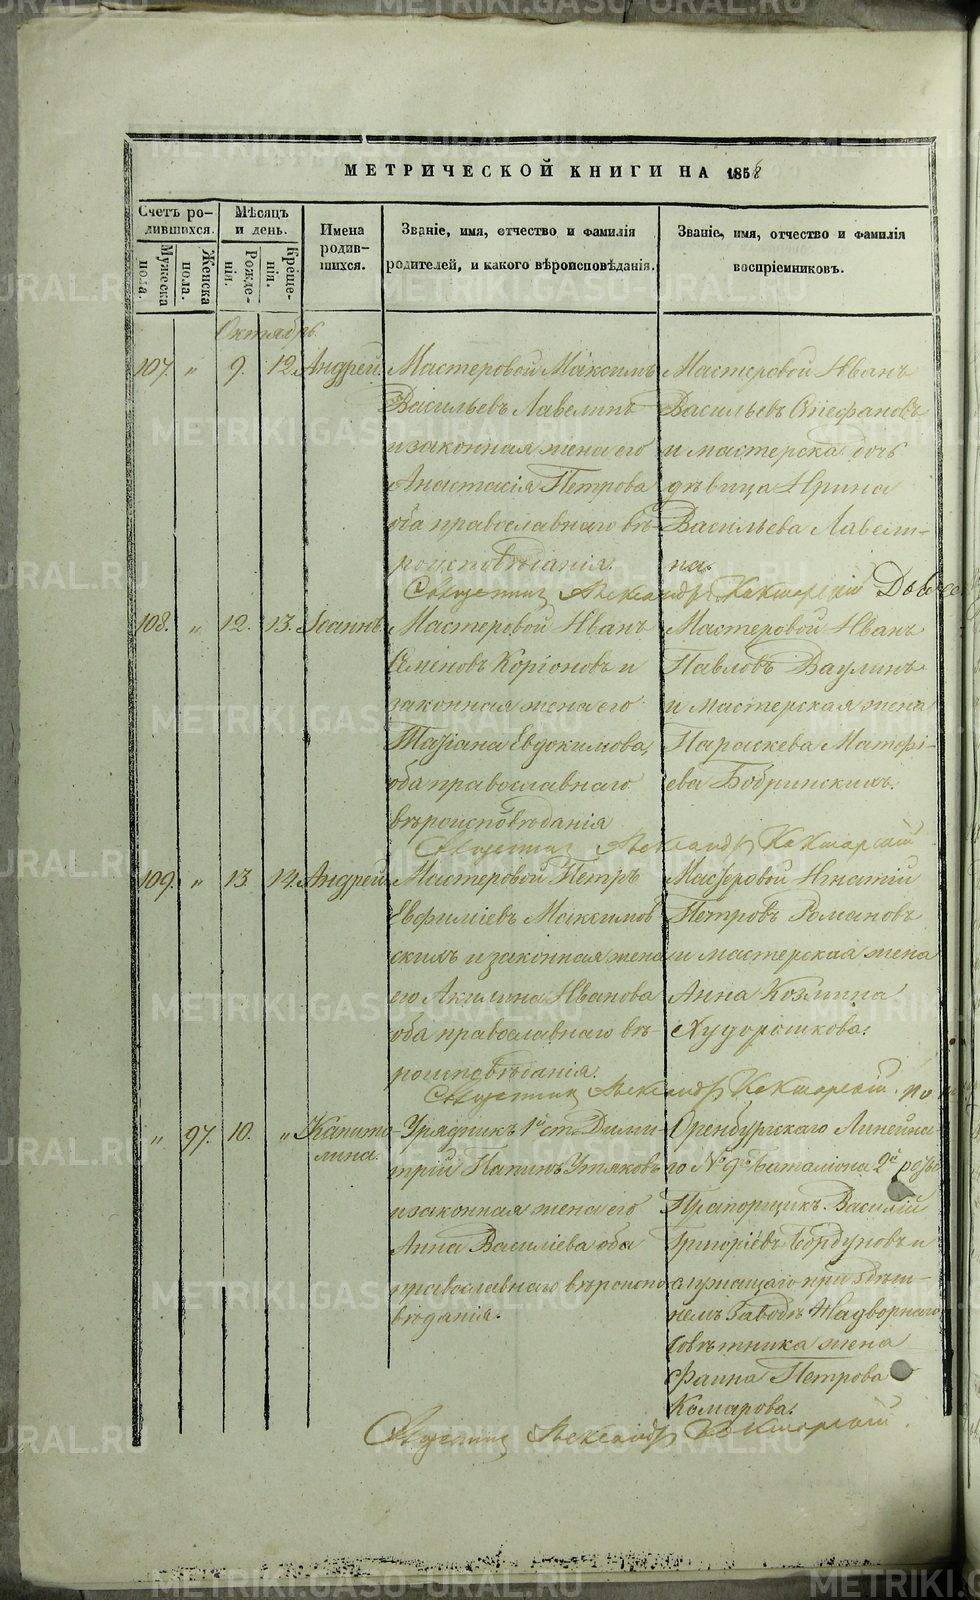 МЕТРИЧЕСКОЙ КНИГИ НА 1858
Счетъ ро-
дившихся.
Мужеска
пола.
Женска
пола.
Мѣсяцъ
и день.
Рожде-
нія.
Креще-
нія.
Имена
родив-
шихся.
Званіе, имя, отчество и фамилія
родителей, и какого вѣроисповѣданія.
Званіе, имя, отчество и фамилія
воспріемниковъ.
Октябрь
107. " 9. 12. Андрей.
Мастеровой Максимъ
Васильевъ Лавелинъ
и законная жена его
Анастасія Петрова
оба православнаго вѣ-
роисповѣданія.
Мастеровой Иванъ
Васильевъ Стефановъ
и мастерска дочь
дѣвица Ирина
Васильева Лавели-
на.
Священникъ Александръ Какшарскій
108. " 12. 13. Іоаннъ
Мастеровой Иванъ
Коріоновъ и
законная жена его
Татіана Евдокимова,
оба православнаго
вѣроисповѣданія
Мастеровой Иванъ
Павловъ Ваулинъ
и мастерская жена
Параскева Матфі-
ева Бобринскихъ.
Священникъ Александръ Какшарскій
109. " 13. 14. Андрей
Мастеровой Петръ
Евфиміевъ Максимов
скихъ и законная жена
его Акилина Иванова
оба православнаго вѣ-
роисповѣданія.
Мастеровой Игнатій
Петровъ Романовъ
и мастерская жена
Анна Козмина
Худорошкова.
Священникъ Александръ Какшарскій. по
" 97. 10. " Капито-
лина.
Урядникъ 1й ст. Дими-
трій Утяковъ
и законная жена его
Анна Василіева оба
православнаго вѣроиспо
вѣданія.
Оренбургскаго Линейна-
го № 9го баталіона 2й роты
Прапорщикъ Василій
Григоріевъ Бордуновъ и
служащаго при здѣш-
немъ Заводѣ Надворнаго
Совѣтника жена
Фаина Петрова
Комарова.
Священникъ Александръ Какшарскій.
METRIKI.GASO-URAL.RU